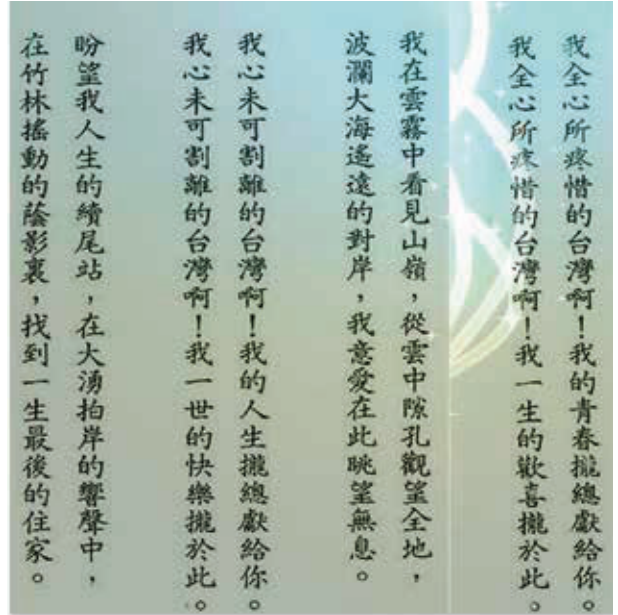 我全心所疼惜的台灣啊！我的青春攏總獻給你。
我全心所疼惜的台灣啊！我一生的歡喜攏於此。
我在雲霧中看見山嶺，從雲中隙孔觀望全地，
波瀾大海遙遠的對岸，我意愛在此眺望無息。
我心未可割離的台灣啊！我的人生攏總獻給你。
我心未可割離的台灣啊！我一世的快樂攏於此。
盼望我人生的續尾站，在大湧拍岸的響聲中，
在竹林搖動的蔭影裏，找到一生最後的住家。